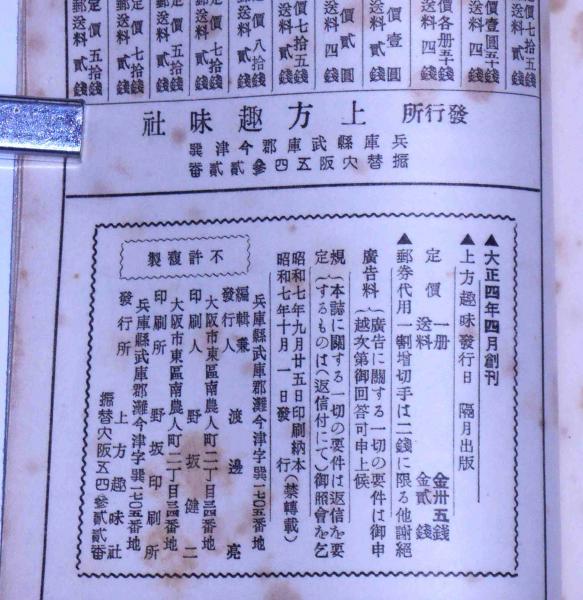 定價七十五錢
郵送料貳錢
定價壹圓五十錢
郵送料四錢
定價各册五十錢
郵送料四錢
定價壹圓
郵送料四錢
定價貳圓
郵送料四錢
定價七拾五錢
郵送料貳錢
定價八拾錢
郵送料貳錢
定價五拾錢
郵送料貳錢
定價七拾錢
郵送料貳錢
定價五拾錢
郵送料貳錢
定價七拾錢
郵送料貳錢
定價五拾錢
郵送料貳錢
發行所 上方趣味社
兵庫縣武庫郡今津巽
振替大阪五四參貳貳番
▲大正四年四月創刊
▲上方趣味發行日 隔月出版
定價 一册 金卅五錢
送料 金貳錢
▲郵券代用一割增切手は二錢に限る他謝絕
廣告料(廣告に關する一切の要件は御申
越次第御回答可申上候
規定(本誌に關する一切の要件は返信を要
するものは(返信付にて)御照會を乞
昭和七年九月廿五日印刷納本
昭和七年十月一日發行(禁轉載)
不許複製
兵庫縣武庫郡灘今津字巽一七〇五番地
編輯兼發行人 渡邊亮
大阪市東區南農人町二丁目三四番地
印刷人 野坂健二
大阪市東區南農人町二丁目三四番地
印刷所 野坂印刷所
兵庫縣武庫郡灘今津字巽一七〇五番地
發行所 上方趣味社
振替大阪五四參貳貳番